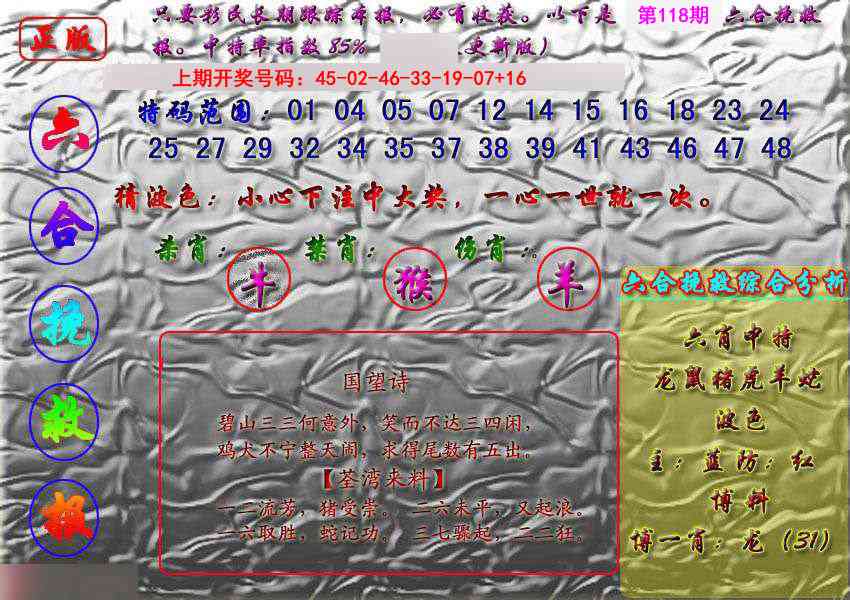 正版
只要彩民长期跟踪本报，必有收获。以下是 第118期 六合挽救
报。中特率指数85% .更新版）
上期开奖号码：45-02-46-33-19-07+16
特码范围：01 04 05 07 12 14 15 16 18 23 24
25 27 29 32 34 35 37 38 39 41 43 46 47 48
猜波色：小心下注中大奖，一心一世就一次。
杀肖：牛 禁肖：猴 伤肖：羊
六合挽救报
国望诗
碧山三三何意外，笑而不达三四闲，
鸡犬不宁整天闹，求得尾数有五出。
【荃湾来料】
一二流芳，猪受崇。 二六未平，又起浪。
一六取胜，蛇记功。 三七骤起，二二狂。
六合挽救综合分析
六肖中特
龙鼠猪虎羊蛇
波色
主：蓝防：红
博料
博一肖：龙（31）